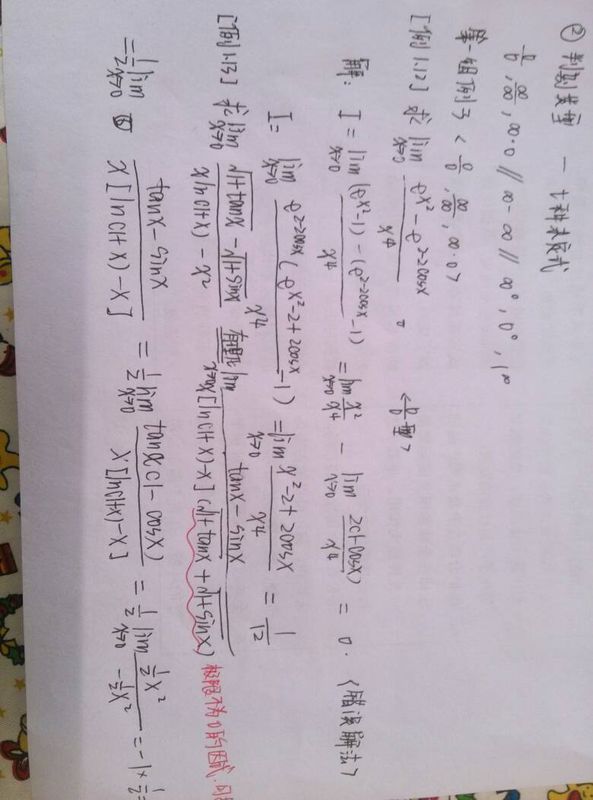 ② 判别类型 — 七种未定式
0/0, ∞/∞, ∞·0 // ∞-∞ // ∞⁰, 0⁰, 1^∞
第一组例子 < 0/0, ∞/∞, ∞·0 >
[例1.12] 求 lim_{x→0} (e^{x²} - e^{2-2cosx}) / x⁴ 。 <0/0型>
解: I = lim_{x→0} ((e^{x²}-1) - (e^{2-2cosx}-1)) / x⁴ = lim_{x→0} x²/x⁴ - lim_{x→0} 2(1-cosx)/x⁴ = 0. <错误解法>
I = lim_{x→0} e^{2-2cosx}(e^{x²-2+2cosx}-1) / x⁴ = lim_{x→0} (x²-2+2cosx) / x⁴ = 1/12
[例1.13] 求 lim_{x→0} (√(1+tanx) - √(1+sinx)) / (x ln(1+x) - x²) 有理化 lim_{x→0} (tanx-sinx) / (x[ln(1+x)-x](√(1+tanx) + √(1+sinx))) 极限不为0的因式
= 1/2 lim_{x→0} (tanx-sinx) / (x[ln(1+x)-x]) = 1/2 lim_{x→0} tanx(1-cosx) / (x[ln(1+x)-x]) = 1/2 lim_{x→0} (½x²) / (-½x²) = -1×½=